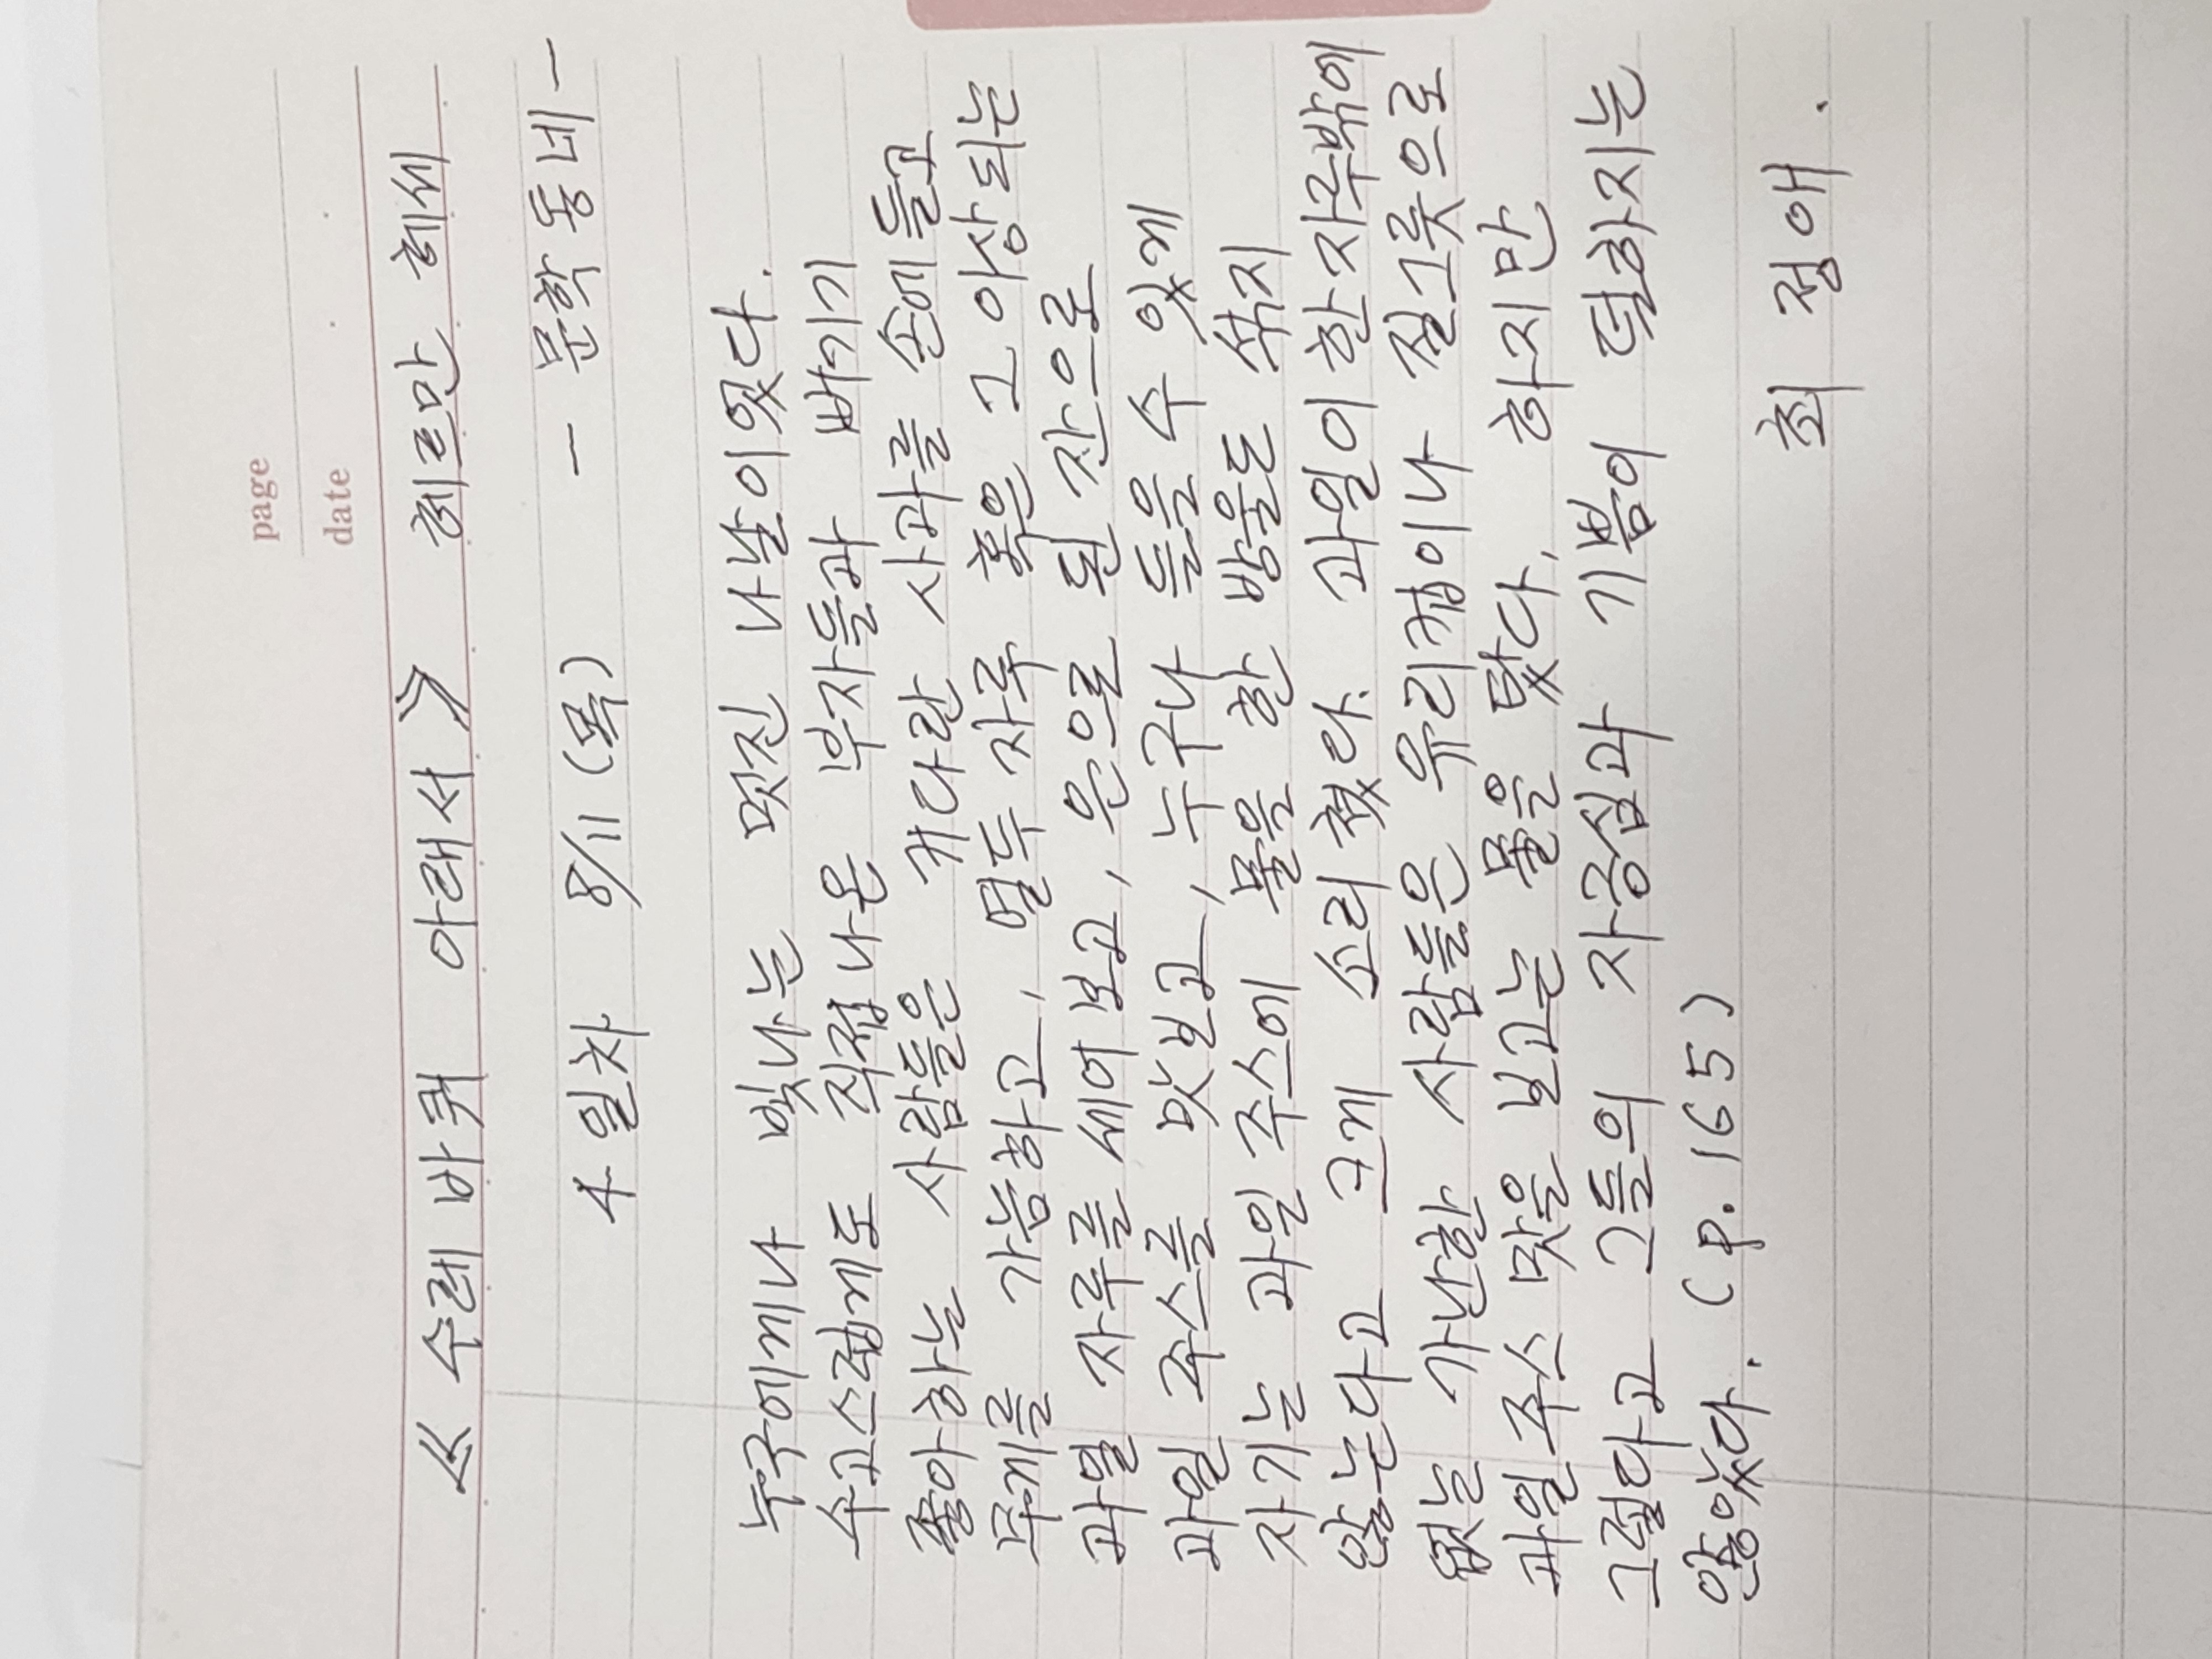 page
date
《 수레바퀴 아래서 》 헤르만 헤세
4일차 8/11 (목) - 문학동네 -
누구에게나 빛나는 멋진 나날이었다.
수고스럽게도 직접 나온 부자들과 뻐기기
좋아하는 사람들은 커다란 사과를 손에 들고
무게를 가늠하고, 열두 자루 혹은 그 이상 되는
과일 자루를 세어 보고, 은으로 된 잔으로
과일 주스를 맛보고, 누구나 들을 수 있게
자기는 과일 주스에 물을 한 방울도 섞지
않는다고 크게 소리쳤다. 과일이 한 자루밖에
없는 가난한 사람들은 유리컵이나 질그릇으로
과일 주스 맛을 보고는 물을 탔다. 하지만
그렇다고 그들의 자긍심과 기쁨이 덜하지는
않았다. (p. 165)
최 정애.